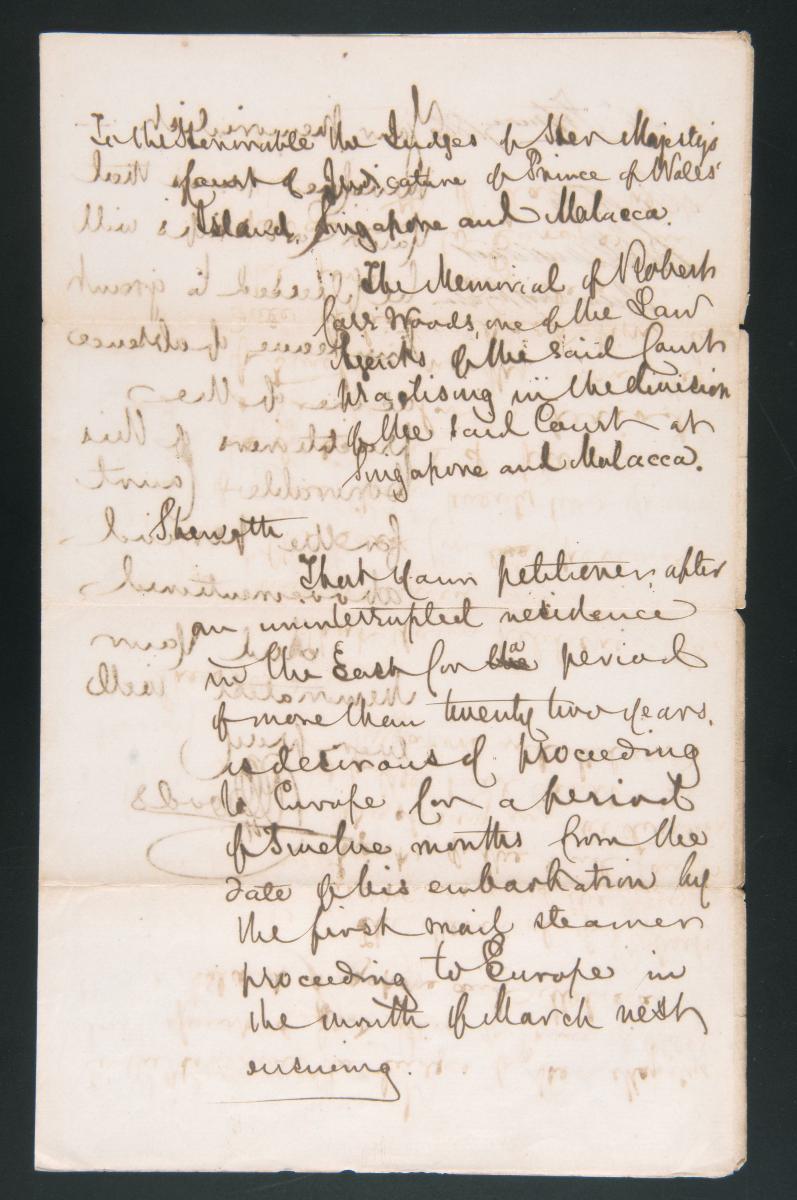 To the Honorable the Judges of Her Majesty's
Court of Judicature of Prince of Wales'
Island, Singapore and Malacca.
The Memorial of Robert
Carr Woods, one of the Law
Agents of the said Court
practising in the division
of the said Court at
Singapore and Malacca.
Sheweth
That your petitioner, after
an uninterrupted residence
in the East for a period
of more than twenty two years,
is desirous of proceeding
to Europe for a period
of Twelve months from the
date of his embarkation by
the first mail steamer
proceeding to Europe in
the month of March next
ensuing.